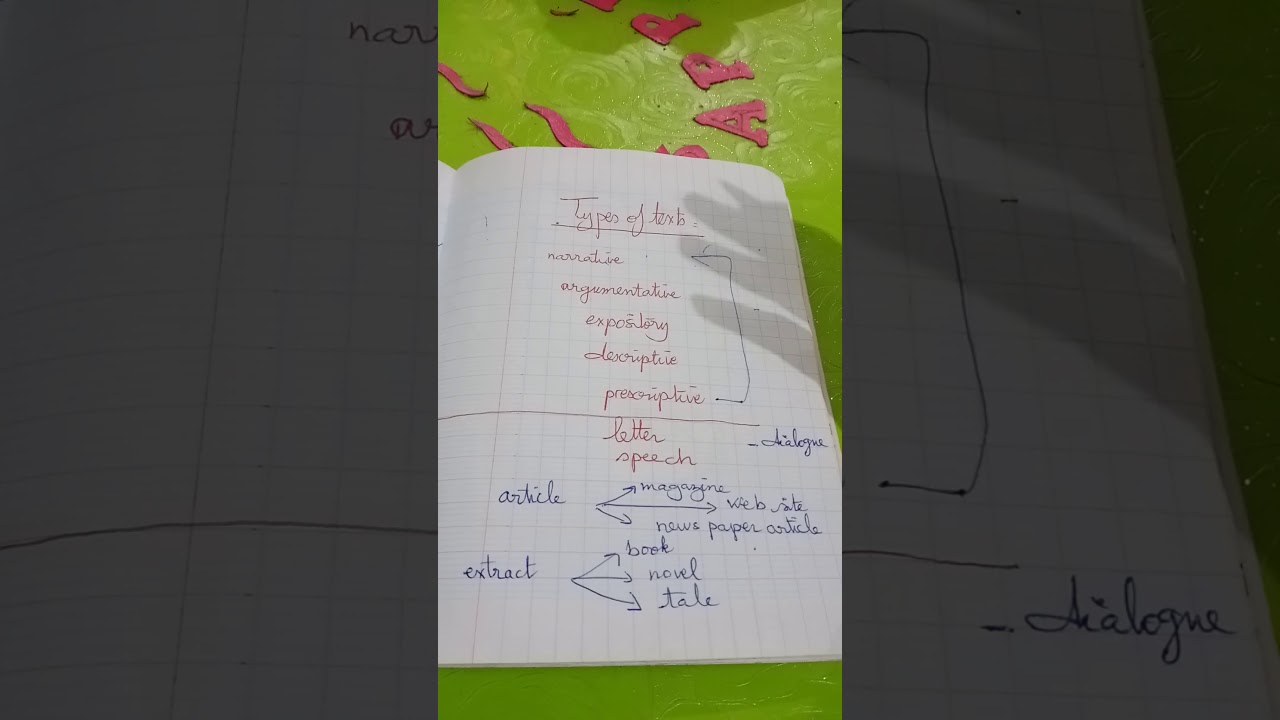 Types of texts:
narrative
argumentative
expository
descriptive
prescriptive
letter
- dialogue
speech
article
magazine
web site
news paper article
extract
book
novel
tale